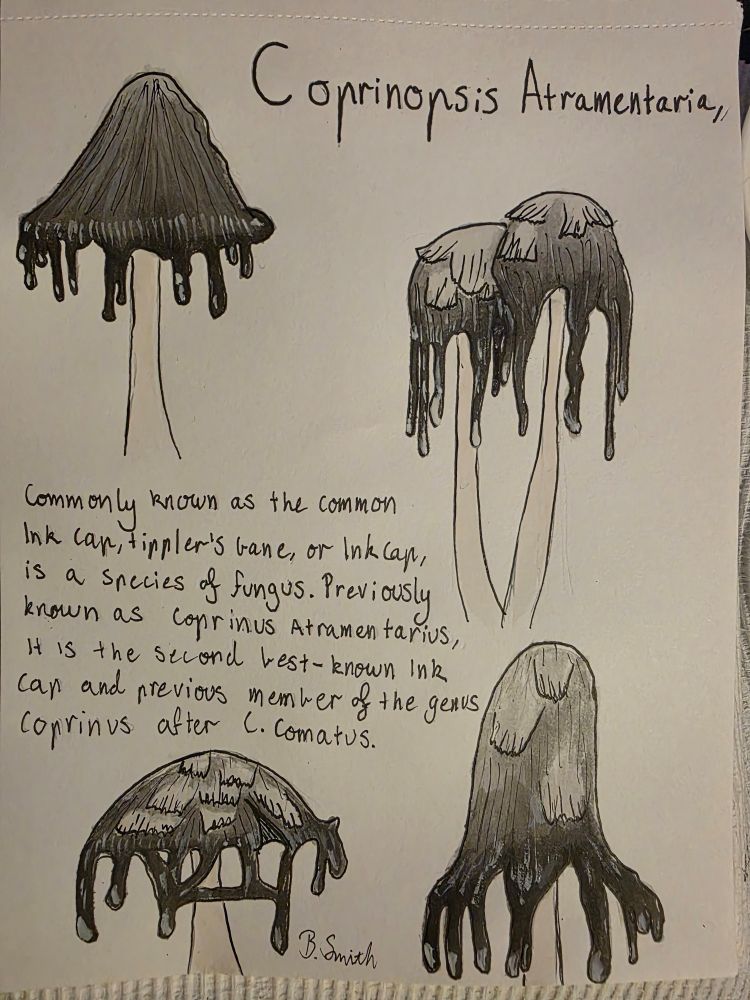 Coprinopsis Atramentaria,
Commonly known as the common
Ink Cap, tippler's bane, or Ink Cap,
is a species of fungus. Previously
known as Coprinus Atramentarius,
It is the second best-known Ink
Cap and previous member of the genus
Coprinus after C. Comatus.
B. Smith